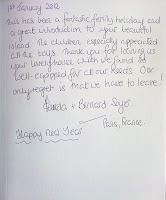 1st January 2012
This has been a fantastic family holiday and
a great introduction to your beautiful
island. The children especially appreciated
all the toys. Thank you for loaning us
your lovely house which we found so
well-equipped for all our needs. Our
only regret is that we have to leave!
+ Bernard
Paris, France.
Happy New Year